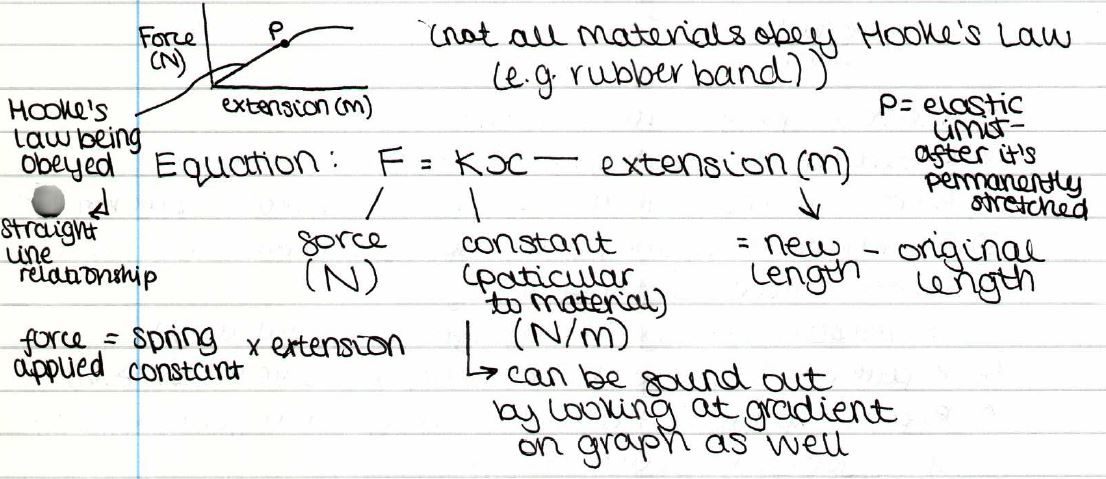 Force
(N)
P
extension (m)
(not all materials obey Hooke's Law
(e.g. rubber band))
Hooke's
Law being
obeyed
straight
line
relationship
P = elastic
limit -
after it's
permanently
stretched
Equation: F = Kx — extension (m)
force
(N)
constant
(paticular
to material)
(N/m)
= new - original
length length
force = spring x extension
applied constant
can be found out
by looking at gradient
on graph as well